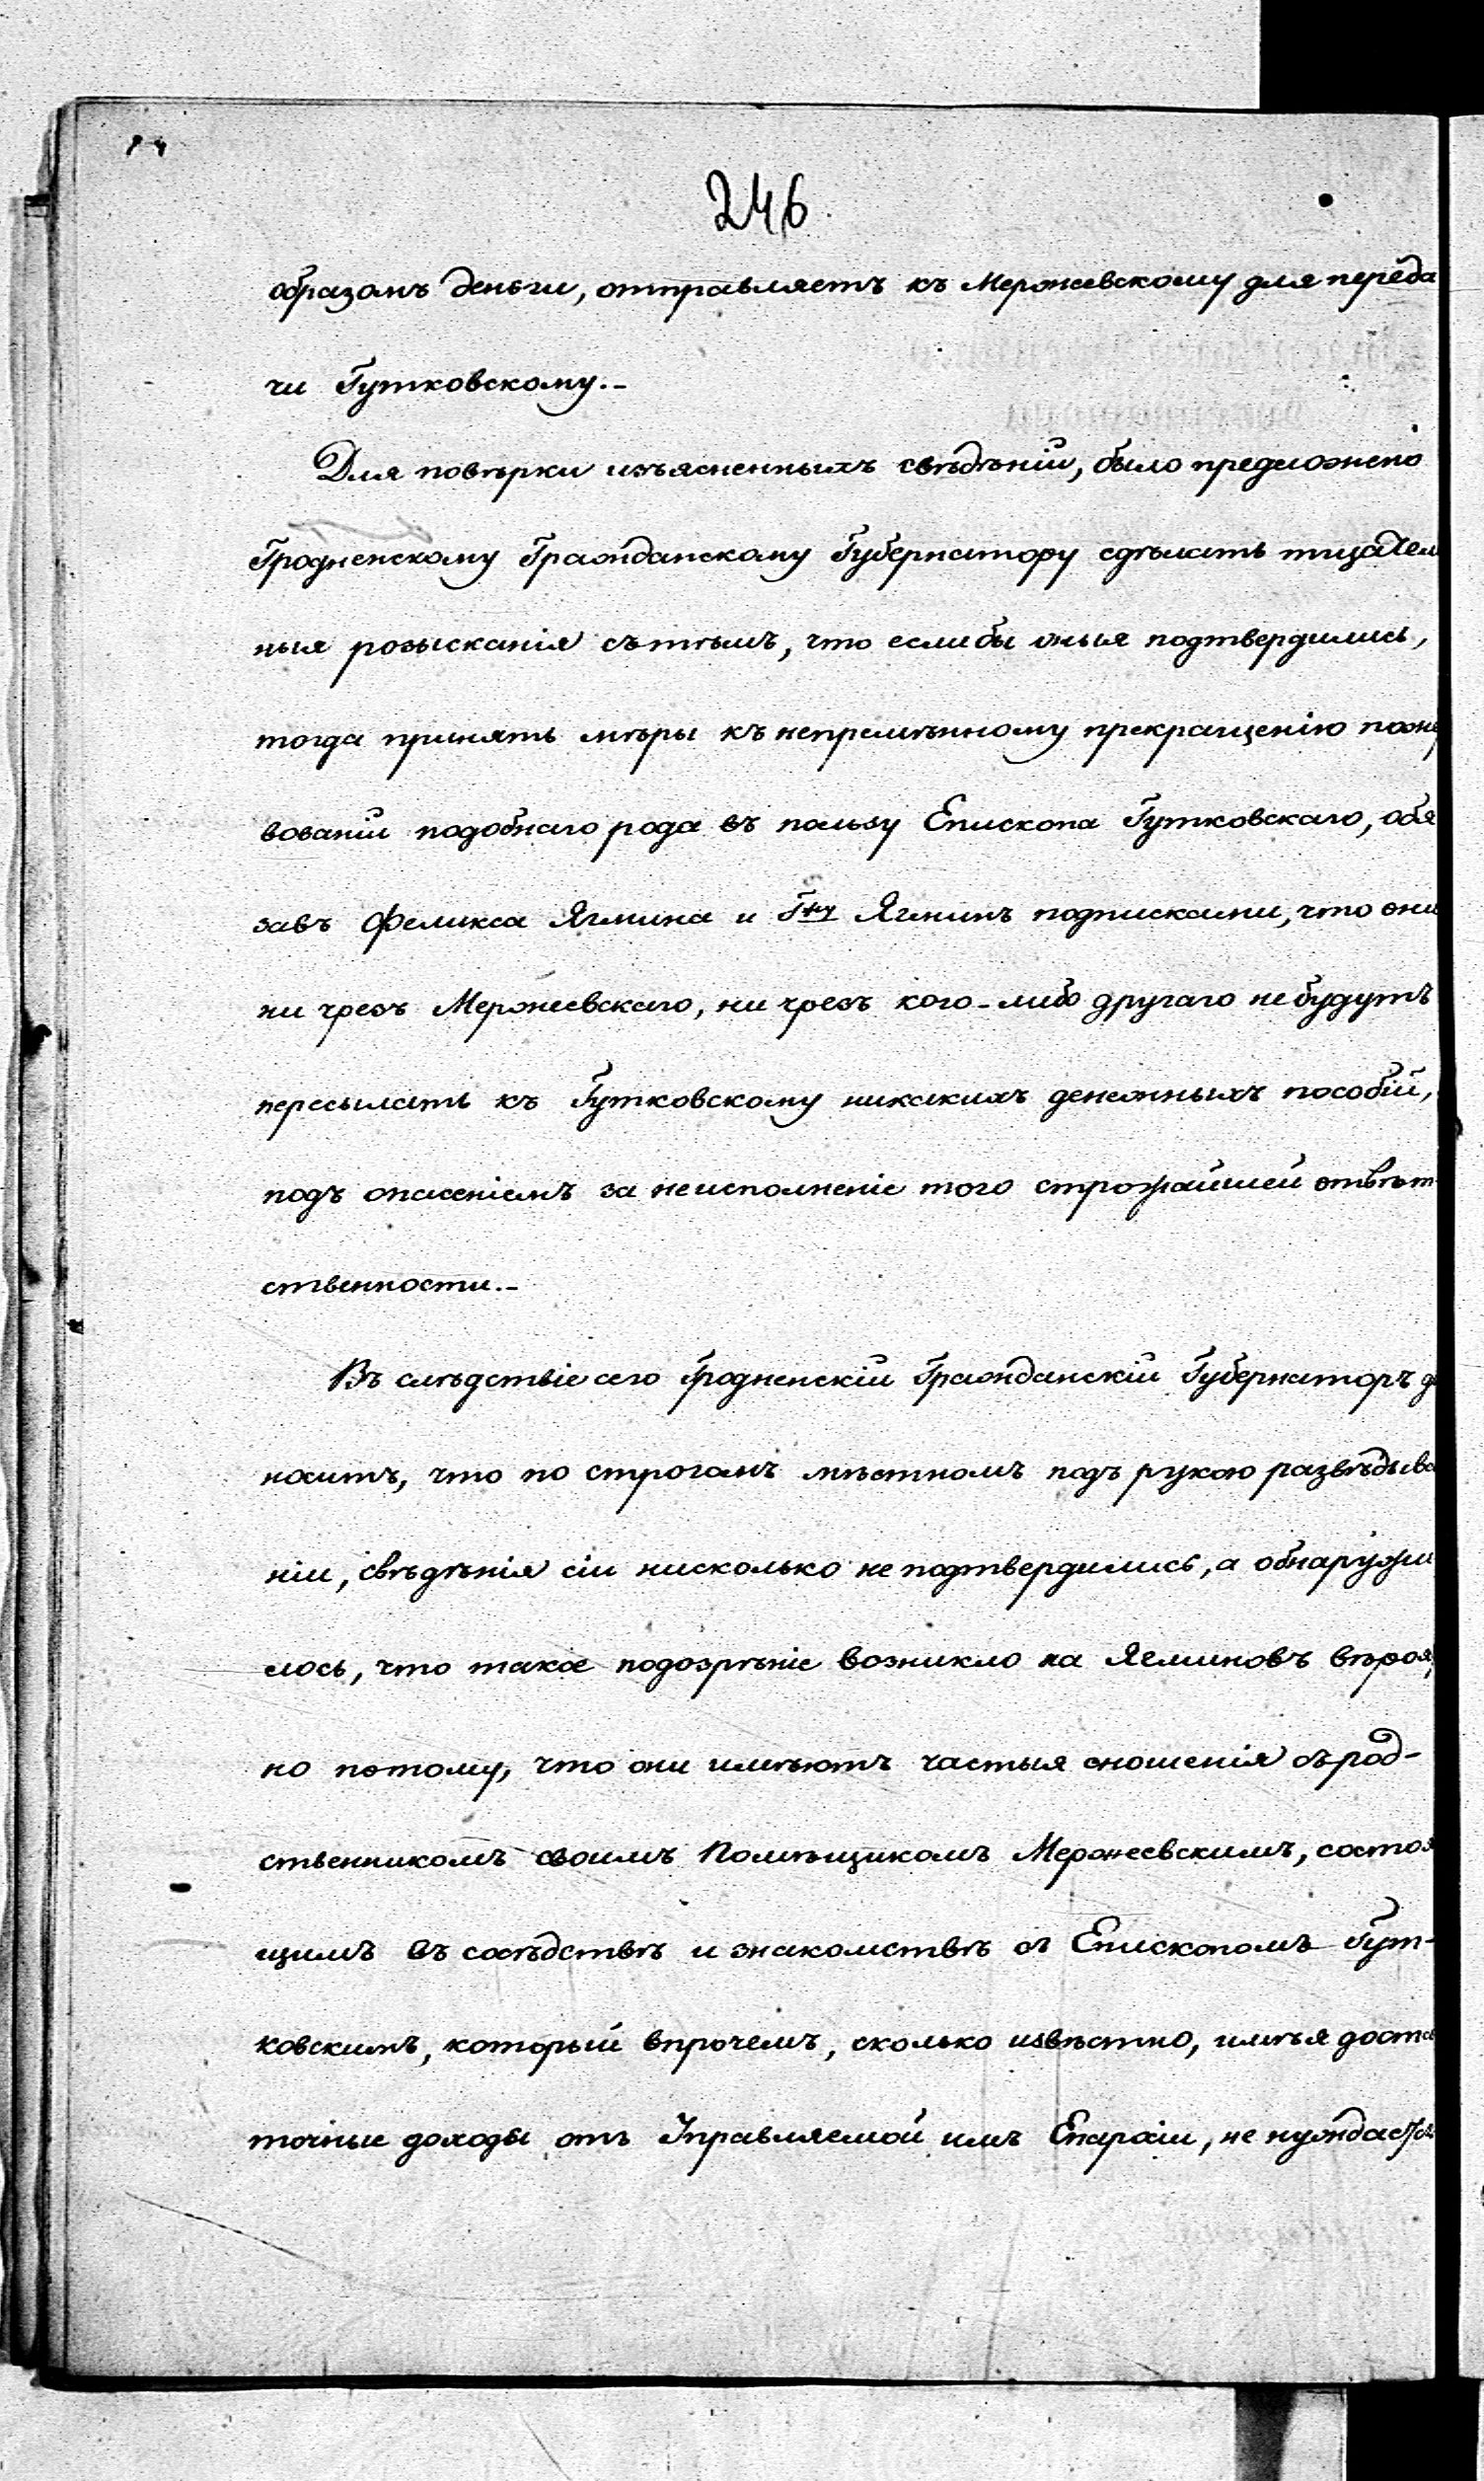 246
образомъ деньги, отправляетъ къ Мержеевскому для переда
чи Гутковскому.-
Для повѣрки изъясненныхъ свѣдѣній, было предложено
Гродненскому Гражданскому Губернатору сдѣлать тщател
ныя розысканія съ тѣмъ, что если бы оныя подтвердились,
тогда принять мѣры къ непремѣнному прекращенію пожер
вованій подобнаго рода въ пользу Епископа Гутковскаго, обя
завъ Феликса Ягмина и Гжу Ягминъ подписками, что они
ни чрезъ Мержеевскаго, ни чрезъ кого-либо другаго не будутъ
пересылать къ Гутковскому никакихъ денежныхъ пособій,
подъ опасеніемъ за неисполненіе того строжайшей отвѣт-
ственности.-
Въ слѣдствіе сего Гродненскій Гражданскій Губернаторъ до
носитъ, что по строгомъ мѣстномъ подъ рукою развѣдыва
ніи, свѣдѣнія сіи нисколько не подтвердились, а обнаружи
лось, что такое подозрѣніе возникло на Ягминовъ вѣроят
но потому, что они имѣютъ частыя сношенія съ род-
ственникомъ своимъ Помѣщикомъ Мержеевскимъ, состоя
щимъ въ сосѣдствѣ и знакомствѣ съ Епископомъ Гут-
ковскимъ, который впрочемъ, сколько извѣстно, имѣя доста
точные доходы отъ Управляемой имъ Епархіи, не нуждается